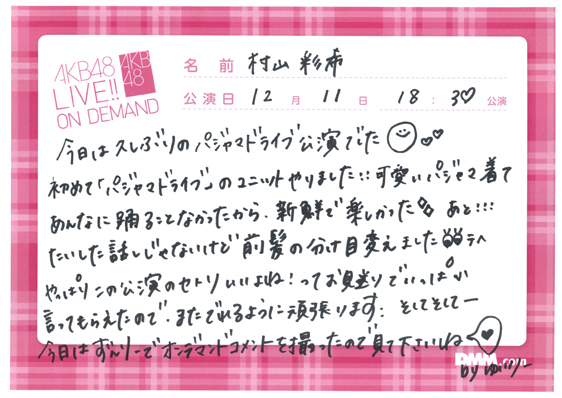 AKB48
LIVE!!
ON DEMAND
AKB
48
名前 村山彩希
公演日 12月11日 18:30公演
今日は久しぶりのパジャマドライブ公演でした
初めて「パジャマドライブ」のユニットやりました!!可愛いパジャマ着て
あんなに踊ることなかったから、新鮮で楽しかった あと!!!
たいした話しじゃないけど前髪の分け目変えました
やっぱりこの公演のセトリいいよね!ってお見送りでいっぱい
言ってもらえたので、またでれるように頑張ります: そしてそしてー
今日はずんりーでオンデマンドコメントを撮ったので見て下さいね
DMM.com
by